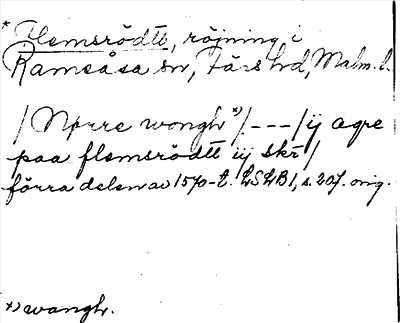 * Flemsrödtt, röjning i
Ramsåsa sn, Färs hd, Malm. l.
/Nørre wongh *)/. --- / ij agre
paa flemsrödtt iij skr/
förra delen av 1570-t. LSLB 1, s. 207. orig.
*) wangh.